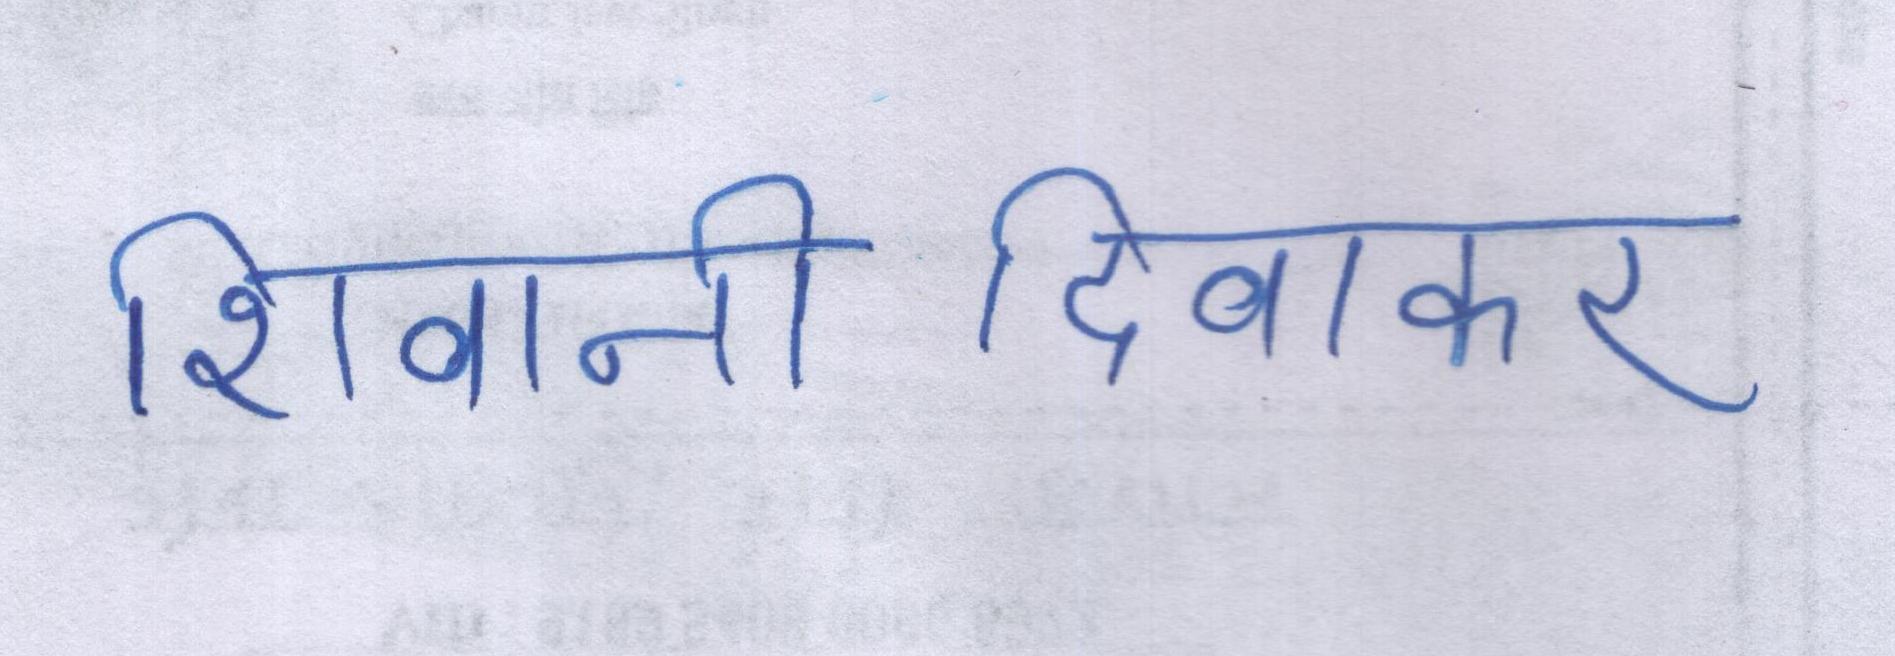 शिवानी दिवाकर